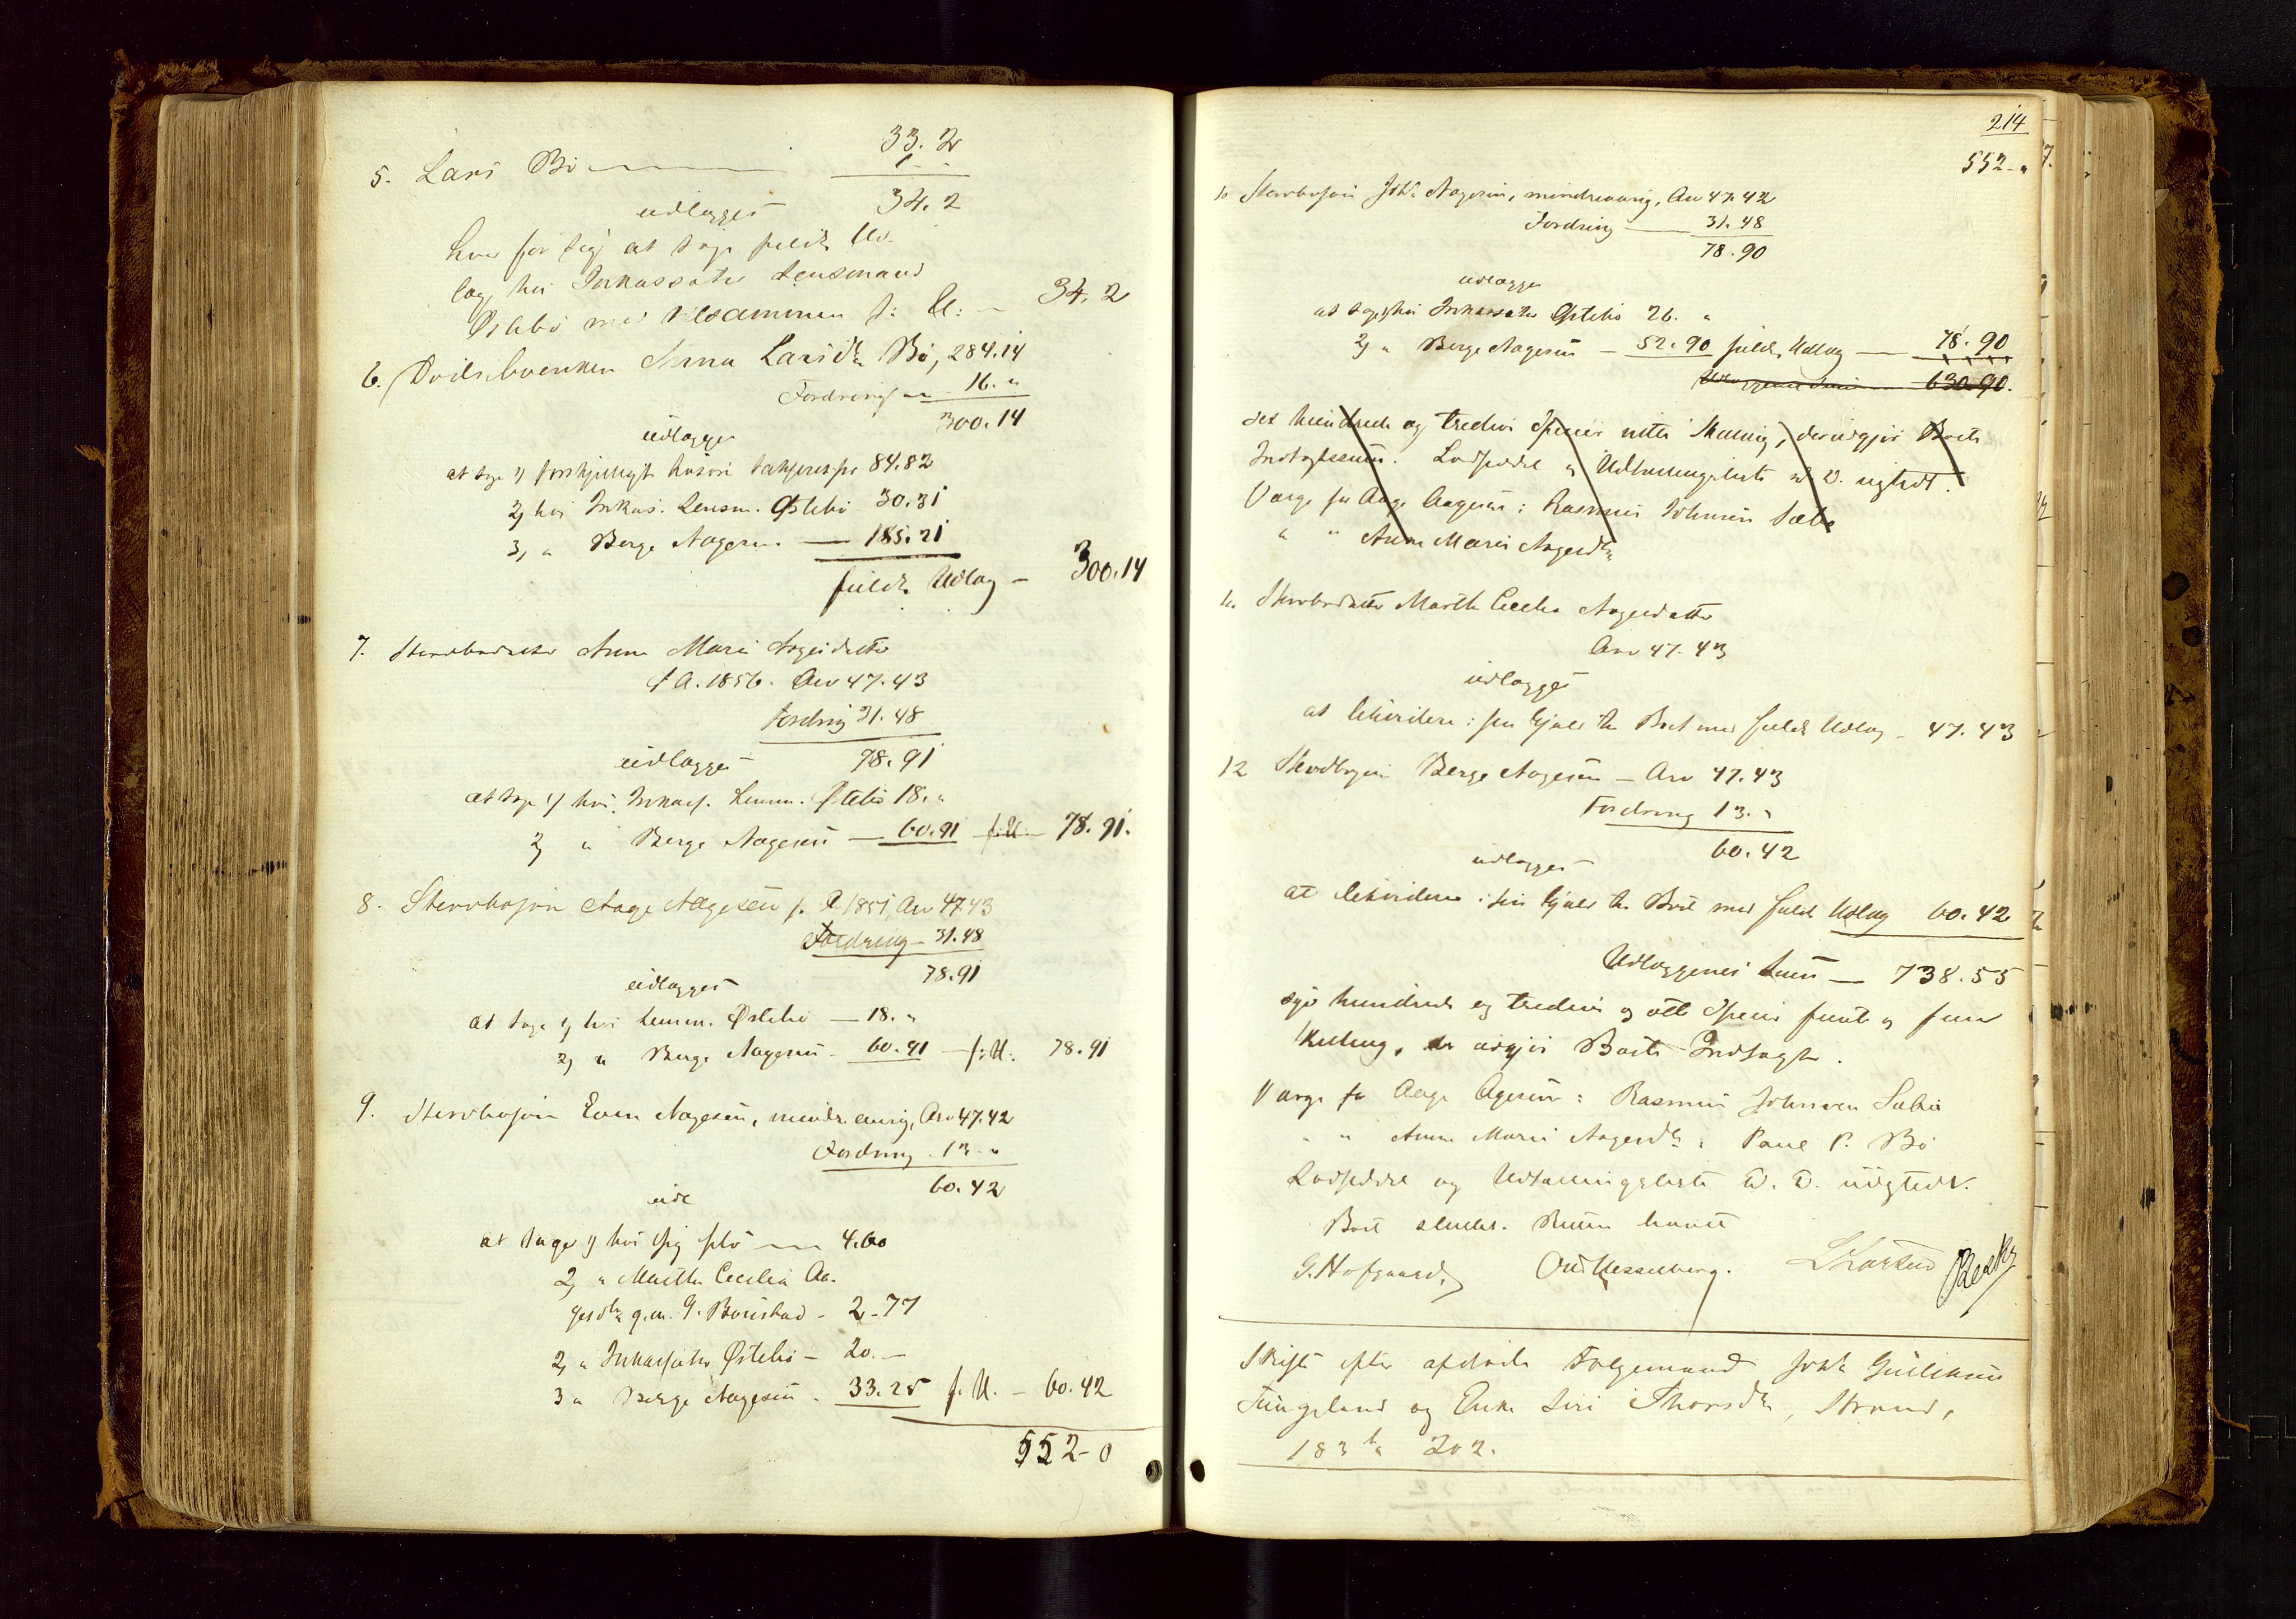 33. 2
5. Lars Bö 1 -
34. 2
udlægges
hver for sig at tage fuldt Ud-
læg hos Inkassator Lensmand
Østebö med tilsammen f: U: — 34. 2
6. Anna Larsdtr Bö, 284.14
Fordring — 16. "
300.14
udlægges
at tage 1) forskjelligt Løsøre 84.82
2) hos Inkas. Lensm. Østebö 30.31
3, " Berge Aagesen — 185.21
fuldt Udlæg — 300.14
7. Stervbodatter Anne Marie Aagesdatter
f. A. 1856. Arv 47.43
Fordring 31.48
udlægges 78.91
at tage 1) hos Inkass. Lensm. Østebö 18. "
2) " Berge Aagesen — 60.91 f: U — 78.91.
8. Stervbosøn Aage Aagesen f. A 1851, Arv 47.43
Fordring — 31.48
78.91
udlægges
at tage 1) hos Lensm. Østebö — 18. "
2) " Berge Aagesen — 60.91 — f: U: 78.91
9. Stervbosøn Even Aagesen, mindreaarig, Arv 47.42
Fordring . 13 - "
60.42
udl
at tage 1) hos sig selv — 4.60
2) " Marthe Cecilia Aa-
gesdtr g.m. G. Bourstad - 2-77
2) " Inkassator Østebö — 20. —
3 " Berge Aagesen . 33.25 f. U. — 60.42
552-0
214
552 - "
10 Stervbosøn Aagesen, mindreaarig, Arv 47.42
Fordring — 31.48
78.90
udlægges
at tage 1) hos Inkassator Østebö 26. "
2) " Berge Aagesen — 52.90 fuldt Udlæg — 78.90
Udlæggenes Sum 630.90.
sex hundrede og tredive Species nitti Skilling, der udgjör Boets
Indtægtssum. Lodseddel og Udlodningsliste udstedt.
Værge for Aage Aagesen: Rasmus Johnsen Sæbö
" " Anne Marie Aagesdtr
11. Stervbodatter Marthe Cecilia Aagesdatter
Arv 47-43
udlægges
at likvidere i sin Gjæld til Boet med fuldt Udlæg - 47.43
12 Stervbosøn Berge Aagesen — Arv 47.43
Fordring 13. "
60.42
udlægges
at likvidere i sin Gjæld til Boet med fuldt Udlæg 60.42
Udlæggenes Sum — 738.55
syv hundrede og tredive og otte Species femti og fem
Skilling, der udgjör Boets Indtægt.
Værge for Aage Agesen: Rasmus Johnsen Sæbö
" " Anne Marie Aagesdtr: Paul P. Bö
Lodseddel og Udlodningsliste udstedt.
Boet sluttet. Retten hævet
G. Hofgaard.
Skifte efter afdöde Følgemand Gulliksen
Tungland og Enke Siri Thorsdtr, Strand,
202.